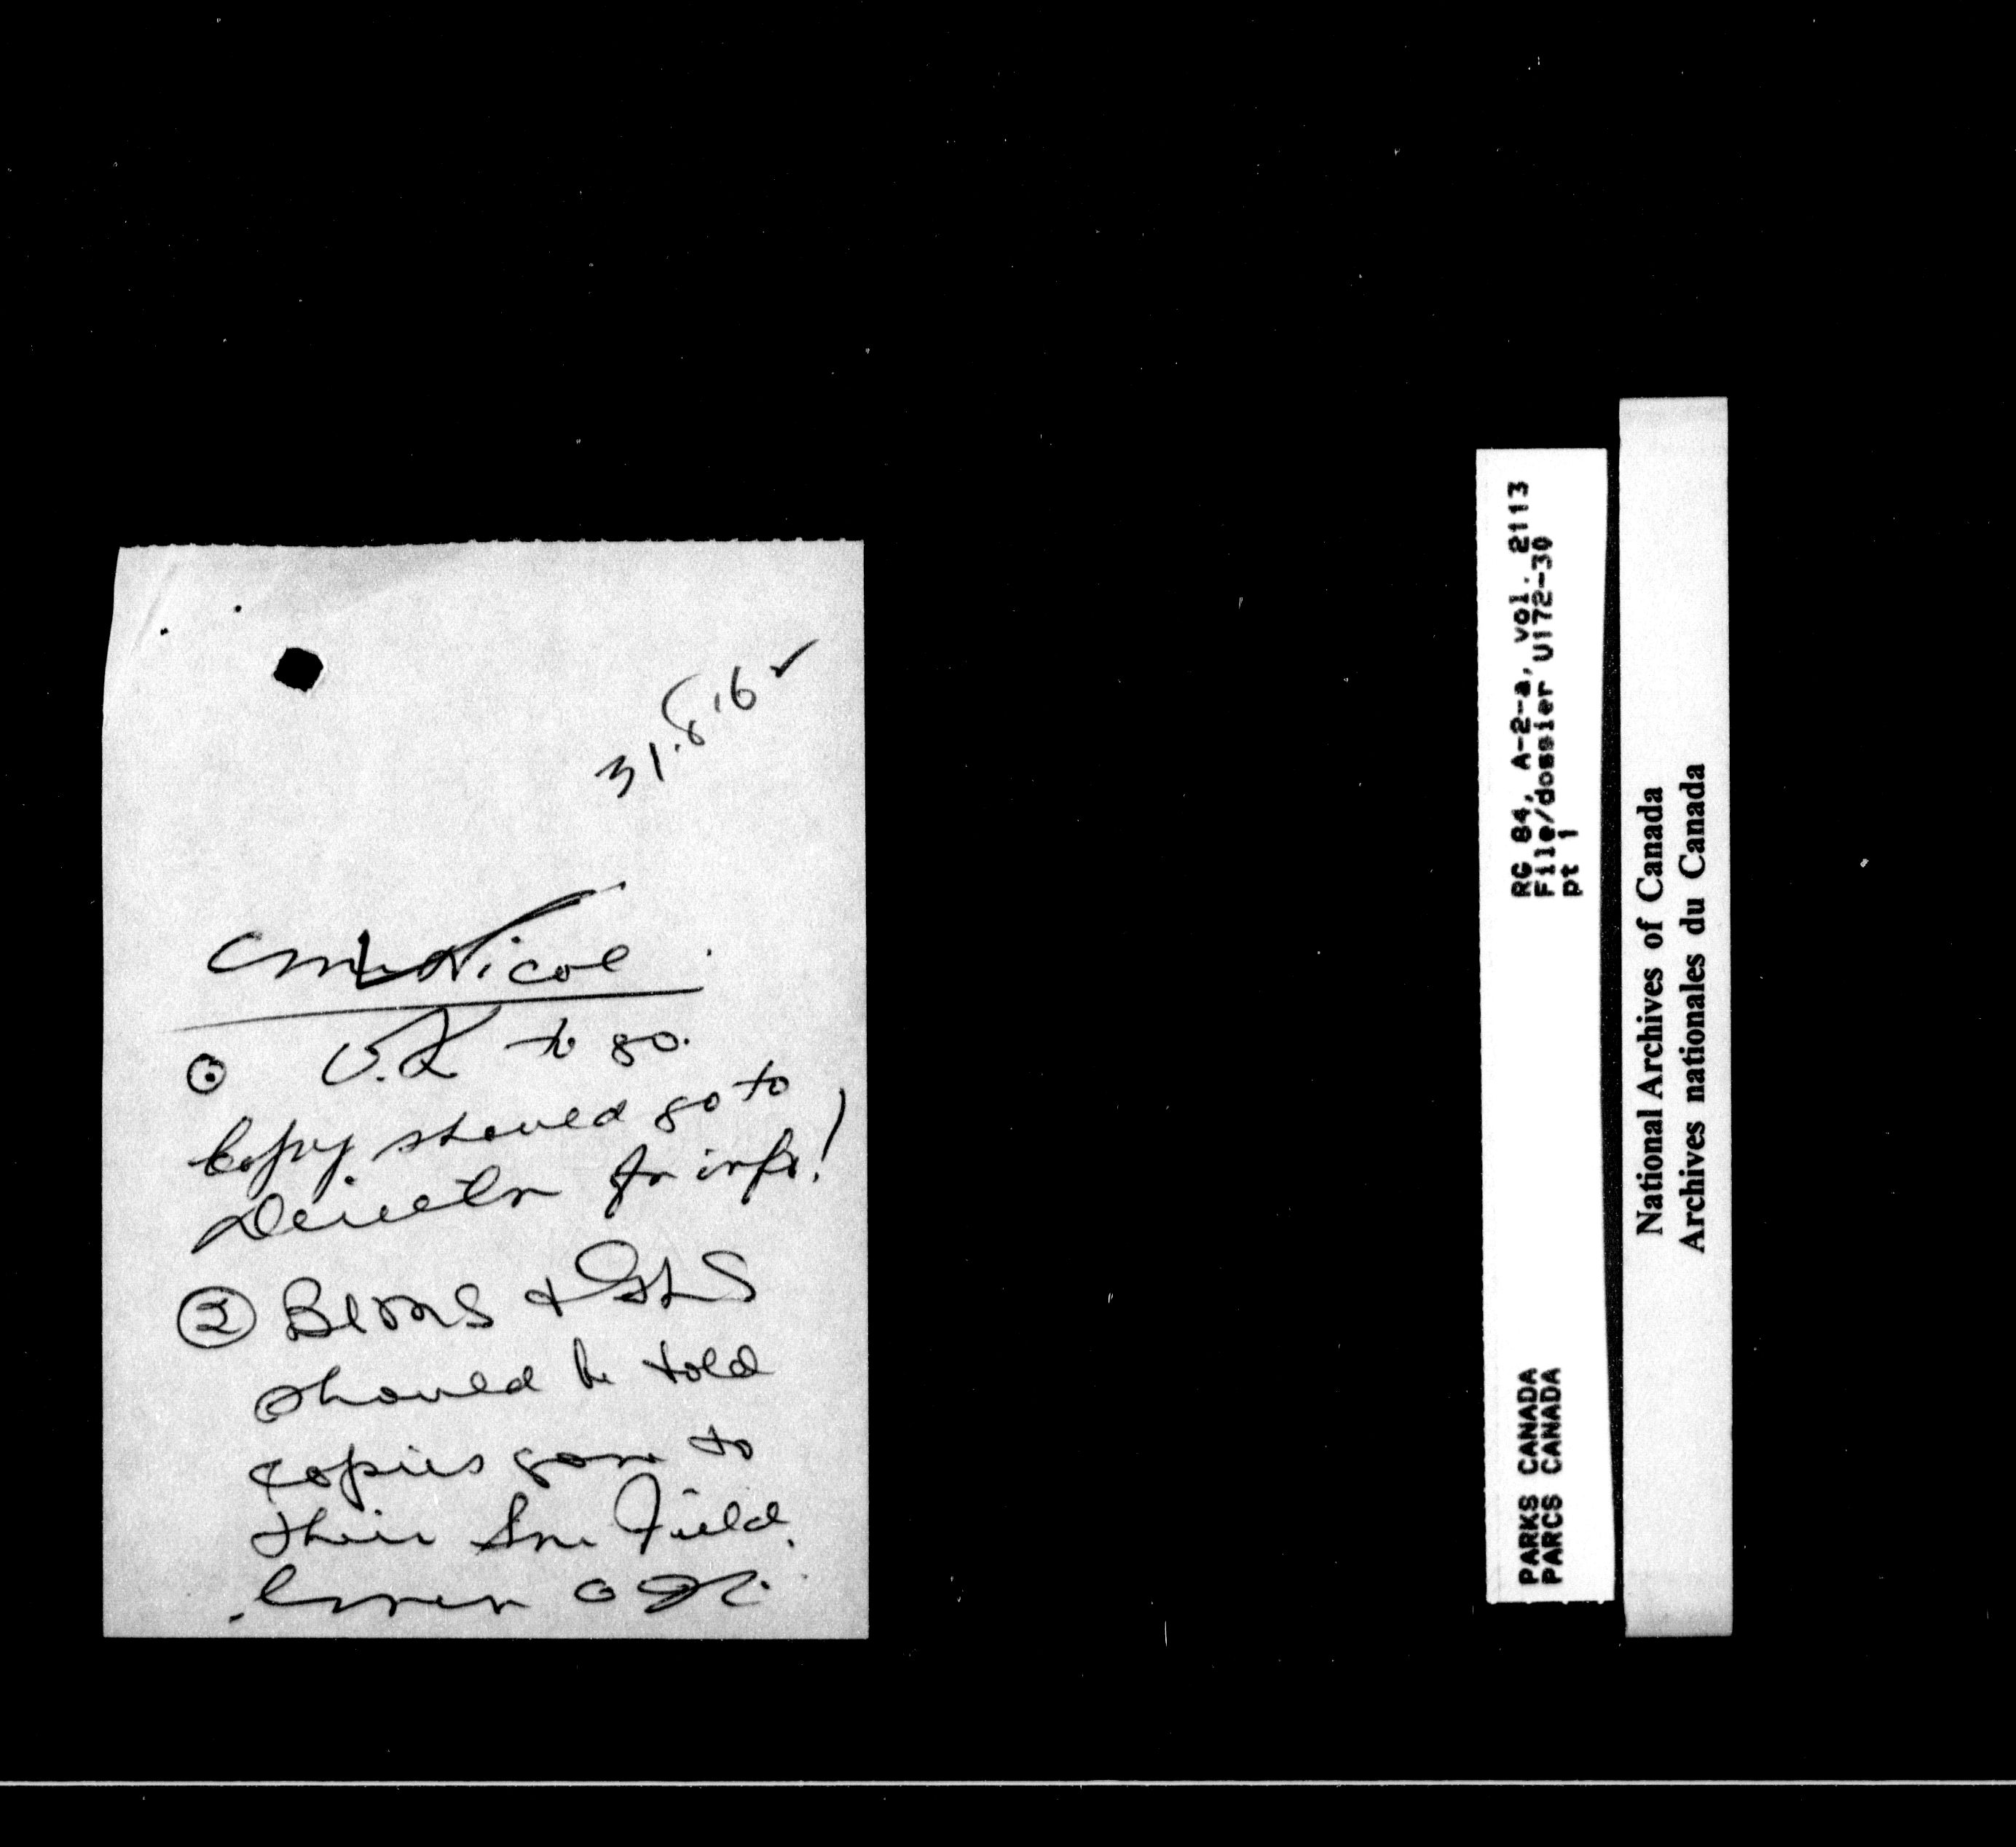 31.8.62
Nicol
① O.K to go.
Copy should go to
Director for info!
② Bldgs &
should be told
copies gone to
their Field.
RG 84, A-2-a, vol. 2113
File/dossier U172-30
pt 1
PARKS CANADA
PARCS CANADA
National Archives of Canada
Archives nationales du Canada